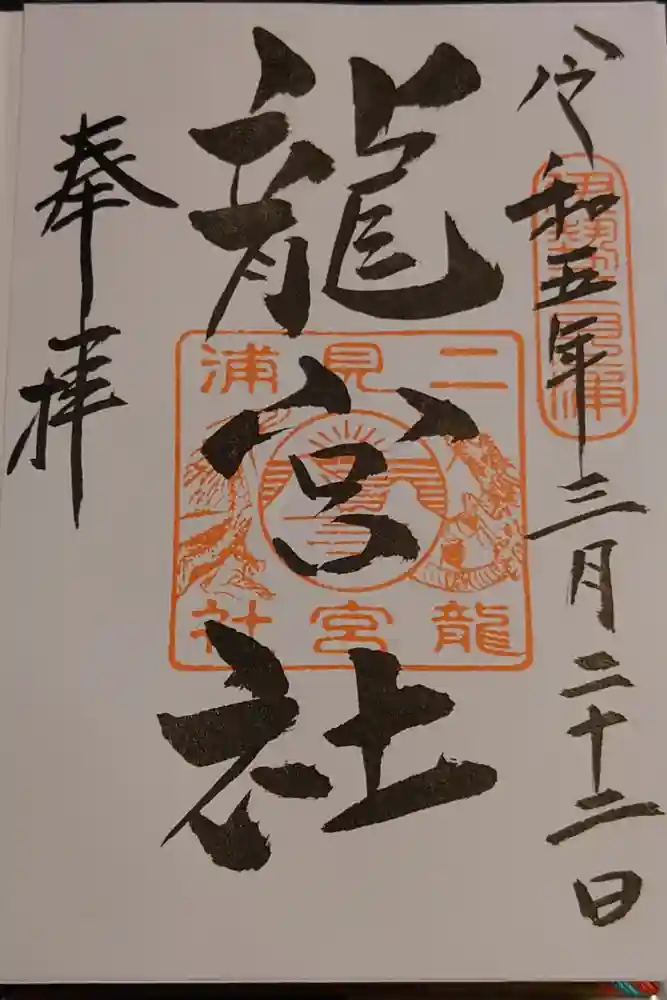 令和五年三月二十二日
伊勢二見浦
龍宮社
二見浦
龍宮社
奉拝